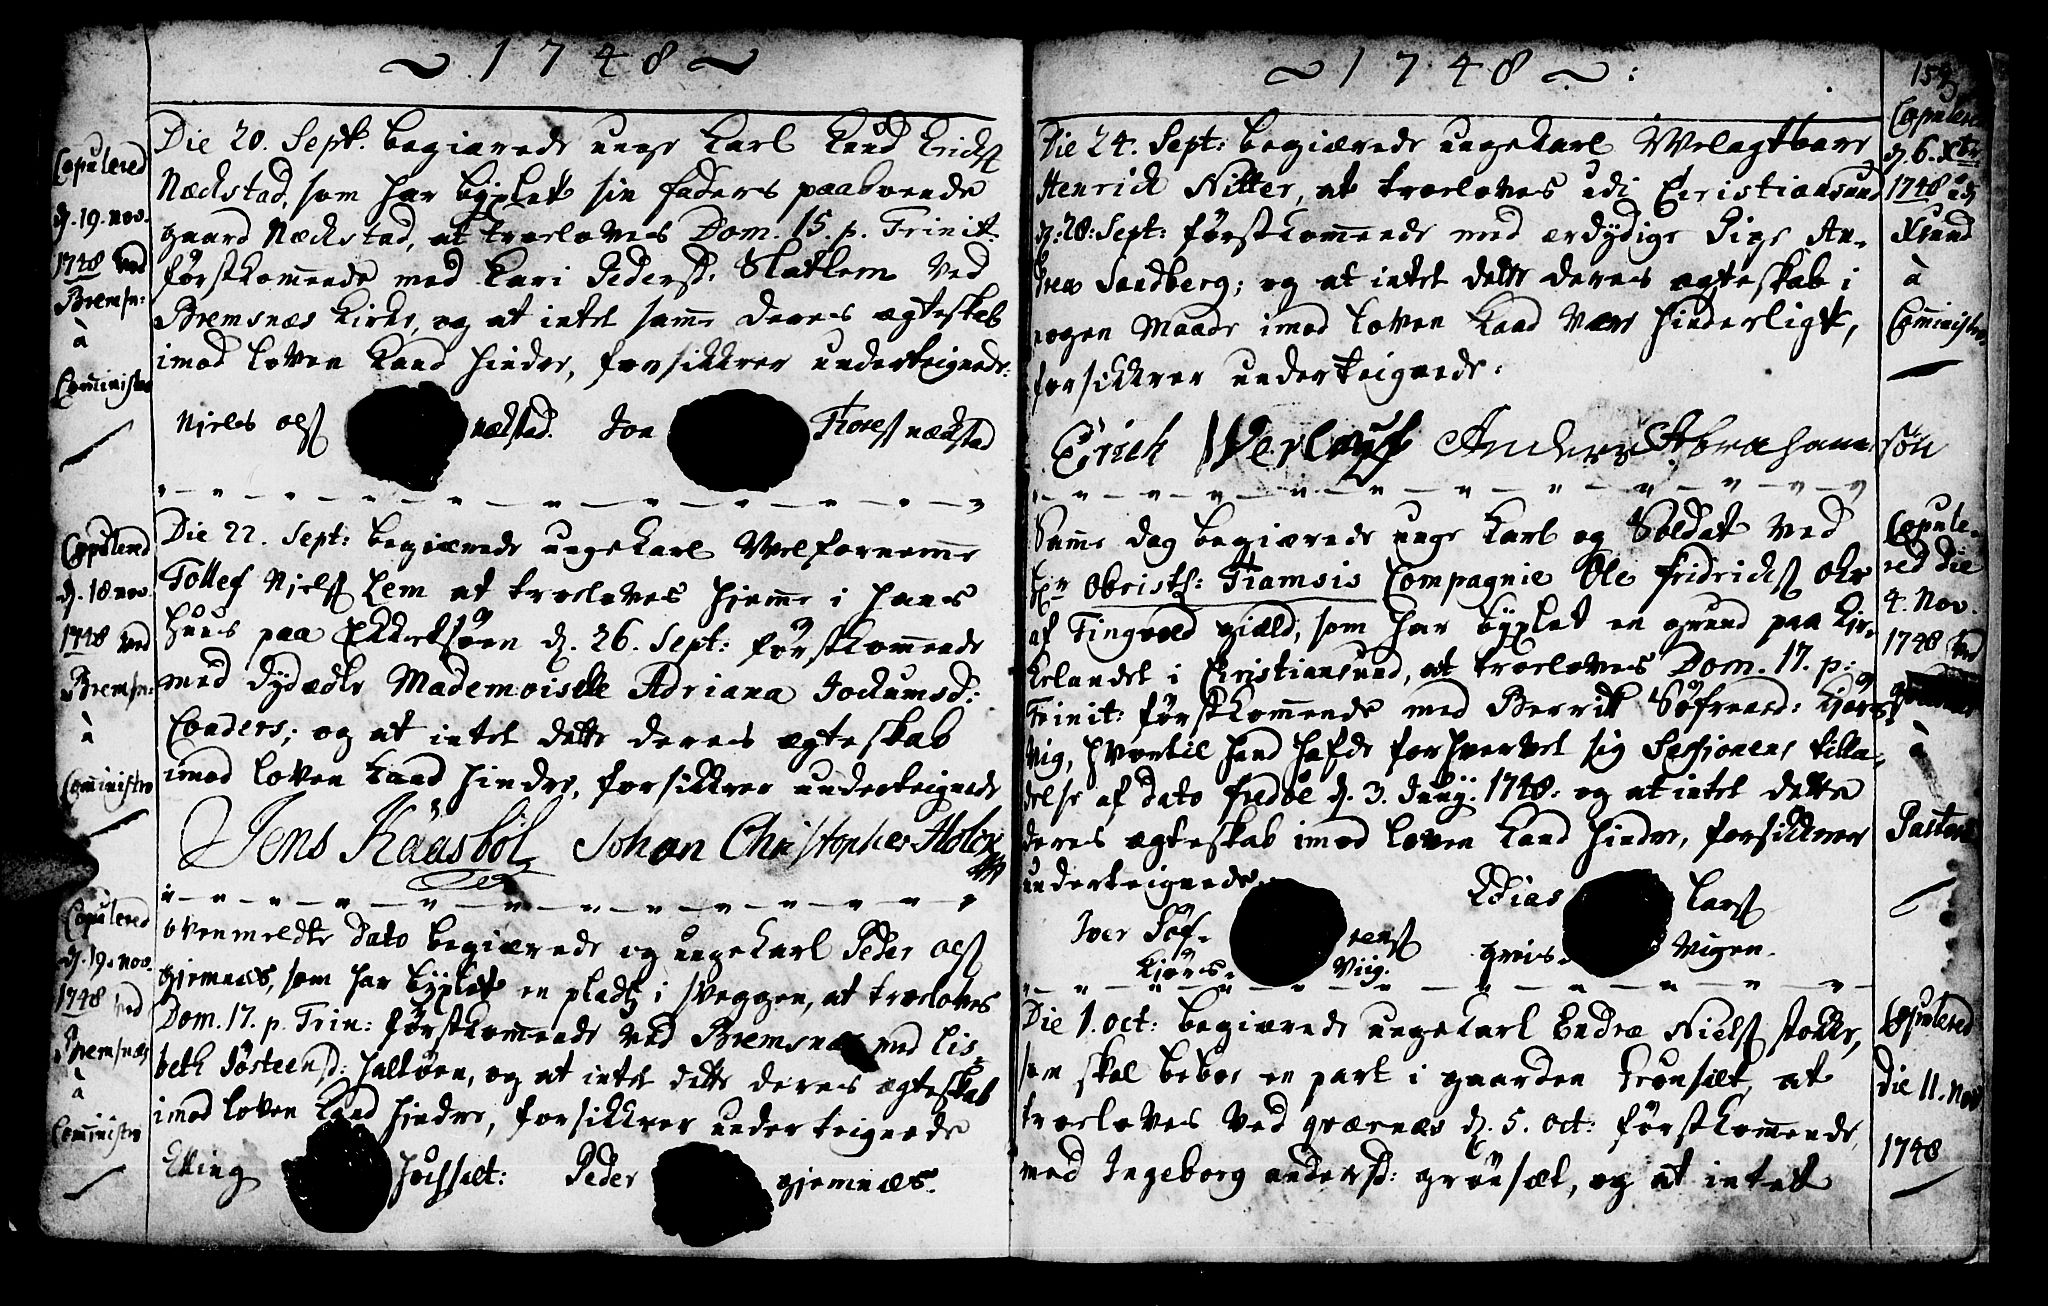 ~ 1748 ~
Copulered
d. 19. nov.
1748 ved
Bremsn:
à
Comministro
Die 20. Sept. begiærede unge Karl Knud Erichs
Næckstad, som har byxlet sin faders paaboende
gaard Næckstad, at troeloves Dom. 15. p. Trinit:
førstkommende med Kari Pedersd: Slatlem ved
Bremsnæs Kirke, og at intet samme deres ægteskab
imod loven kand hindre, forsikkrer underteignede:
Njels Ols nækstad. Jon Tores nækstad
Copulered
d. 18 nov.
1748 ved
Bremsn:
à
Comministro
Die 22. Sept: begiærede ungekarl Velfornemme
Tollef Njels Lem at troeloves hjemme i hans
huus paa Ekkilsøen d. 26. Sept: førstkommende
med dydædle Mademoiselle Adriana Jochumsd:
Coaders; og at intet dette deres ægteskab
imod loven kand hindre, forsikkrer underteignede
Jens Kaasbøl Johan Christopher Holck
Copulered
d. 19. nov.
1748 ved
Bremsnæs
à
Comministro
ovenmeldte dato begiærede og ungekarl Peder Ols
gjemnæs, som har byxlet en pladtz i Sveggen, at troeloves
Dom. 17. p. Trin: førstkommende ved Bremsnæs med Lis-
beth Jøsteensd: haltøen, og at intet dette deres ægteskab
imod loven kand hindre, forsikkrer underteignede
Elling hochselt: Peder gjemnæs.
~ 1748 ~:
153
Copulered
d. 6. Xbr.
1748 udj
Xsund
à
Comministro
Die 24. Sept: begiærede ungekarl Welagtbare
Henrick Nitter, at troeloves udi Christiansund
d. 28. Sept: førstkommende med ærdydige Pige An-
drea Sandberg; og at intet dette deres ægteskab i
nogen maade imod loven kand være hinderligt,
forsikkrer underteignede.
Erich Werlauff Anders Abrahamsøn
Copule-
red die
4. Nov.
1748 ved
à
Pastore
Samme dag begiærede unge karl og Soldat ved
Hr. Obristl: Tiamsis Compagnie Ole Fridrichs
af Tingvold gield, som har byxlet en grund paa Kir-
kelandet i Christiansund, at troeloves Dom. 17. p:
Trinit: førstkommende med Berrit Søfrensd: Kjørs-
vig, hvortil hand hafde forhvervet sig Sessionens tilla-
delse af dato fredøe d. 3. Juny. 1748. og at intet dette
deres ægteskab imod loven kand hindre, forsikkrer
underteignede.
Iver Søf- rens Elias Lars
Kjørs- Viig. greis- Vigen.
Copulered
die 11. Nov
1748
Die 1. oct: begiærede ungekarl Endræ Niels stokke,
som skal beboe en part i gaarden Grønsæt, at
troeloves ved qværnæs d. 5. oct: førstkommende
med Ingeborg andersd: grønsæt, og at intet